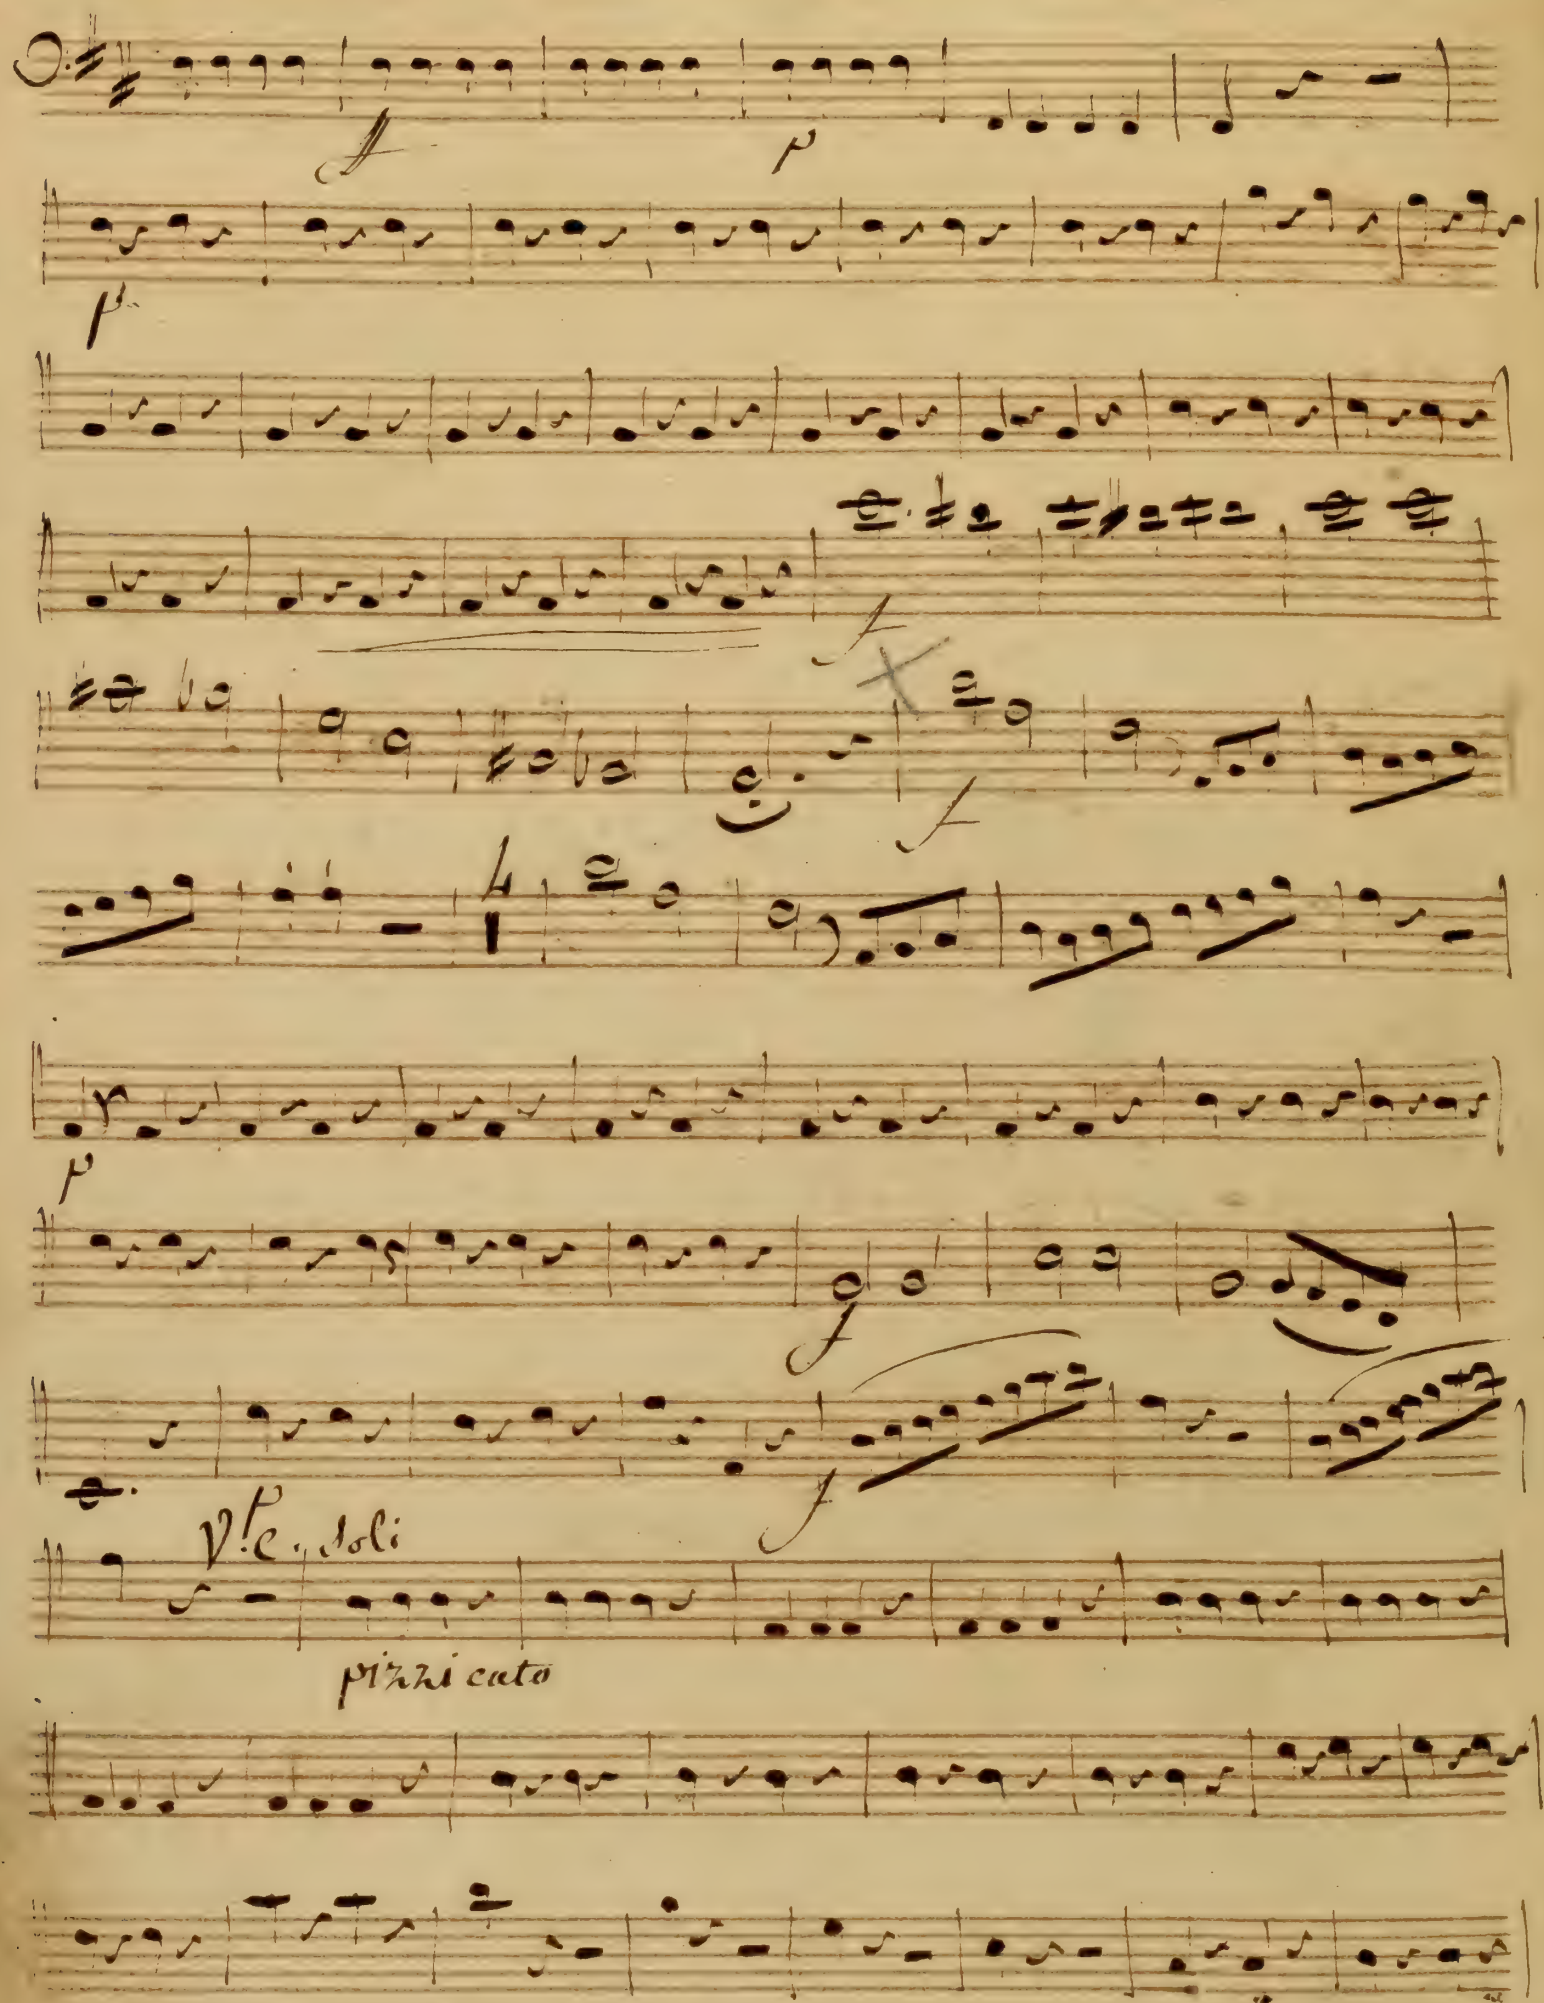 ff p
p.
f
f
4
p
f
p f
V.c. soli
pizzicato